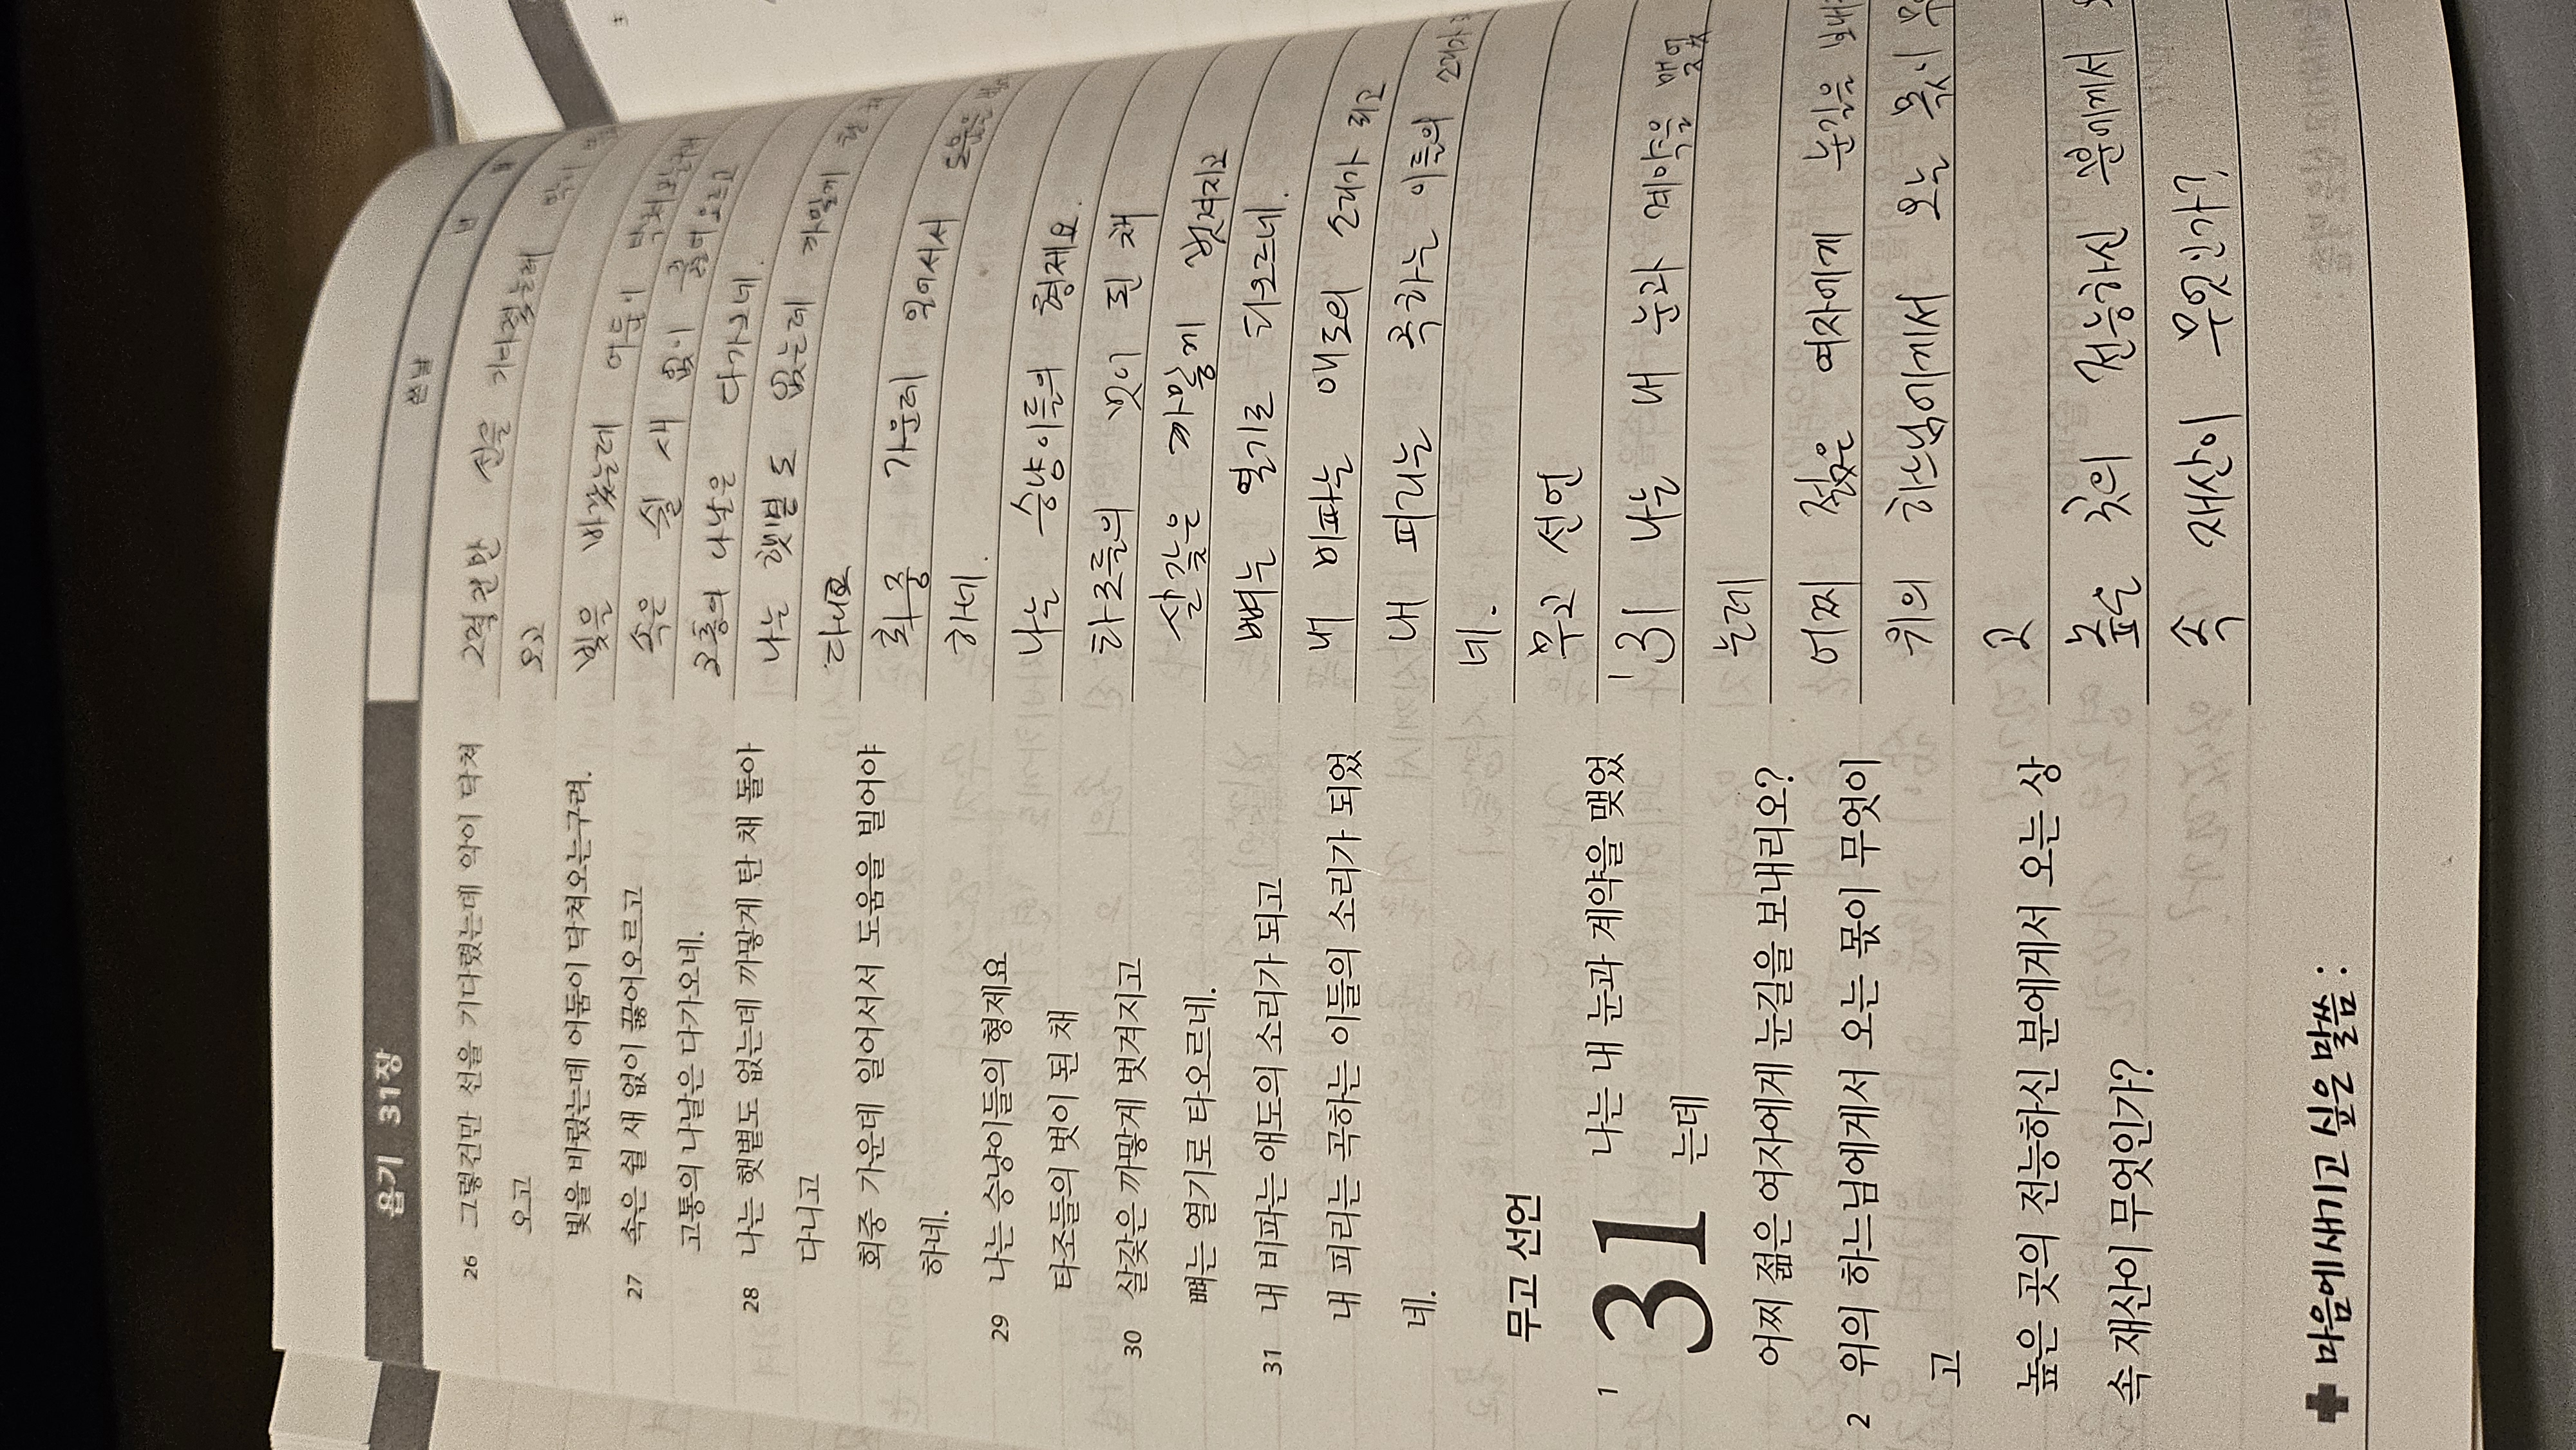 욥기 31장
쓴 날
26 그렇건만 선을 기다렸는데 악이 닥쳐
오고
빛을 바랐는데 어둠이 닥쳐오는구려.
27 속은 쉴 새 없이 끓어오르고
고통의 나날은 다가오네.
28 나는 햇볕도 없는데 까맣게 탄 채 돌아
다니고
회중 가운데 일어서서 도움을 빌어야
하네.
29 나는 승냥이들의 형제요
타조들의 벗이 된 채
30 살갗은 까맣게 벗겨지고
뼈는 열기로 타오르네.
31 내 비파는 애도의 소리가 되고
내 피리는 곡하는 이들의 소리가 되었
네.
무고 선언
31
1 나는 내 눈과 계약을 맺었
는데
어찌 젊은 여자에게 눈길을 보내리오?
2 위의 하느님에게서 오는 몫이 무엇이
고
높은 곳의 전능하신 분에게서 오는 상
속 재산이 무엇인가?
그렇건만 선을 기다렸는데 악이
오고
빛을 바랐는데 어둠이 닥쳐오는구려
속은 쉴 새 없이 끓어오르고
고통의 나날은 다가오네.
나는 햇볕도 없는데 까맣게 탄 채
다니고
회중 가운데 일어서서 도움을
하네.
나는 승냥이들의 형제요.
타조들의 벗이 된 채
살갗은 까맣게 벗겨지고
뼈는 열기로 타오르네.
내 비파는 애도의 소리가 되고
내 피리는 곡하는 이들의 소리가
네.
무고 선언
31 나는 내 눈과 계약을 맺었
는데
어찌 젊은 여자에게 눈길을
위의 하느님에게서 오는 몫이
고
높은 곳의 전능하신 분에게서
속 재산이 무엇인가?
✚ 마음에 새기고 싶은 말씀 :